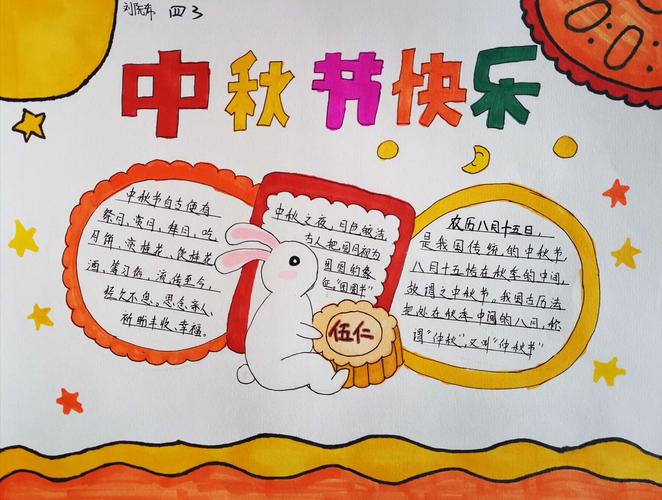 四3
中秋节快乐
中秋节自古便有
祭月、赏月、拜月、吃
月饼、赏桂花、饮桂花
酒等习俗，流传至今，
经久不息。思念亲人、
祈盼丰收、幸福。
中秋之夜，月色皎洁
古人把圆月视为
团圆的象
征"团圆节"
伍仁
农历八月十五日，
是我国传统的中秋节
八月十五恰在秋季的中间，
故谓之中秋节。我国古历法
把处在秋季中间的八月，称
谓"仲秋"，又叫"仲秋节"